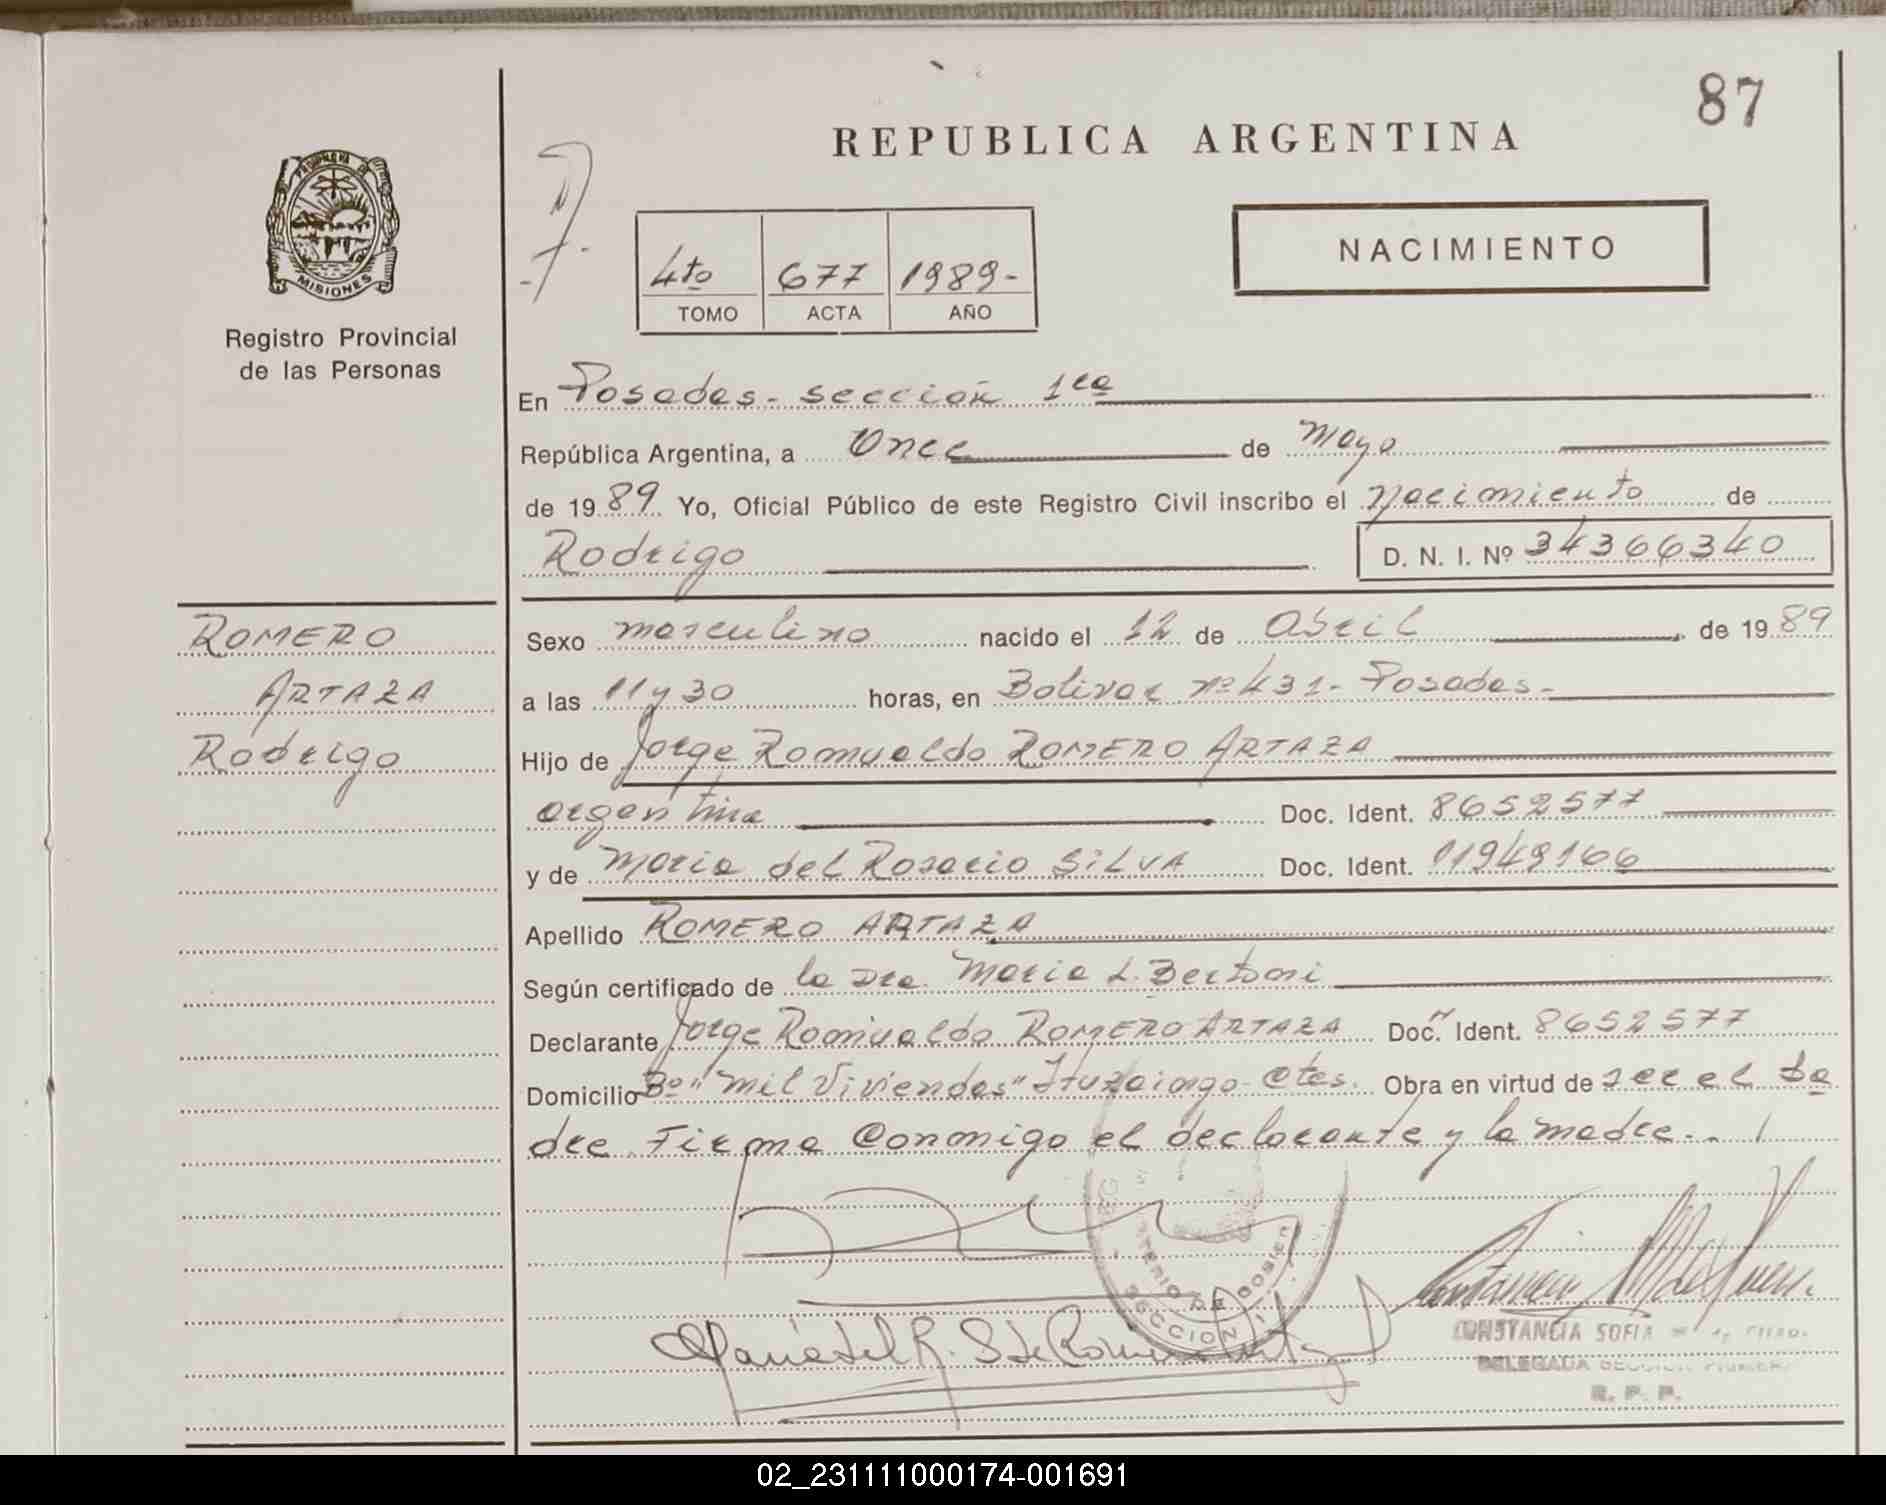 87
REPUBLICA ARGENTINA
PROVINCIA DE
MISIONES
Registro Provincial
de las Personas
NACIMIENTO
4to 677 1989-
TOMO ACTA AÑO
En Posadas - sección 1ra
República Argentina, a Once de Mayo
de 1989 Yo, Oficial Público de este Registro Civil inscribo el Nacimiento de
Rodrigo D. N. I. Nº 34366340
ROMERO
ARTAZA
Rodrigo
Sexo masculino nacido el 12 de Abril de 1989
a las 11 y 30 horas, en Bolivar nº 431 - Posadas -
Hijo de Jorge Romualdo ROMERO ARTAZA
argentina Doc. Ident. 8652577
y de Maria del Rosario SILVA Doc. Ident. 11949166
Apellido ROMERO ARTAZA
Según certificado de la Dra. Maria L. Bertoni
Declarante Jorge Romualdo ROMERO ARTAZA Doc. Ident. 8652577
Domicilio Bº "Mil Viviendas" Ituzaingo - Ctes. Obra en virtud de ser el Pa
dre. Firma Conmigo el declarante y la madre.
SECCION
CONSTANCIA SOFIA
DELEGADA
R. P. P.
02_231111000174-001691